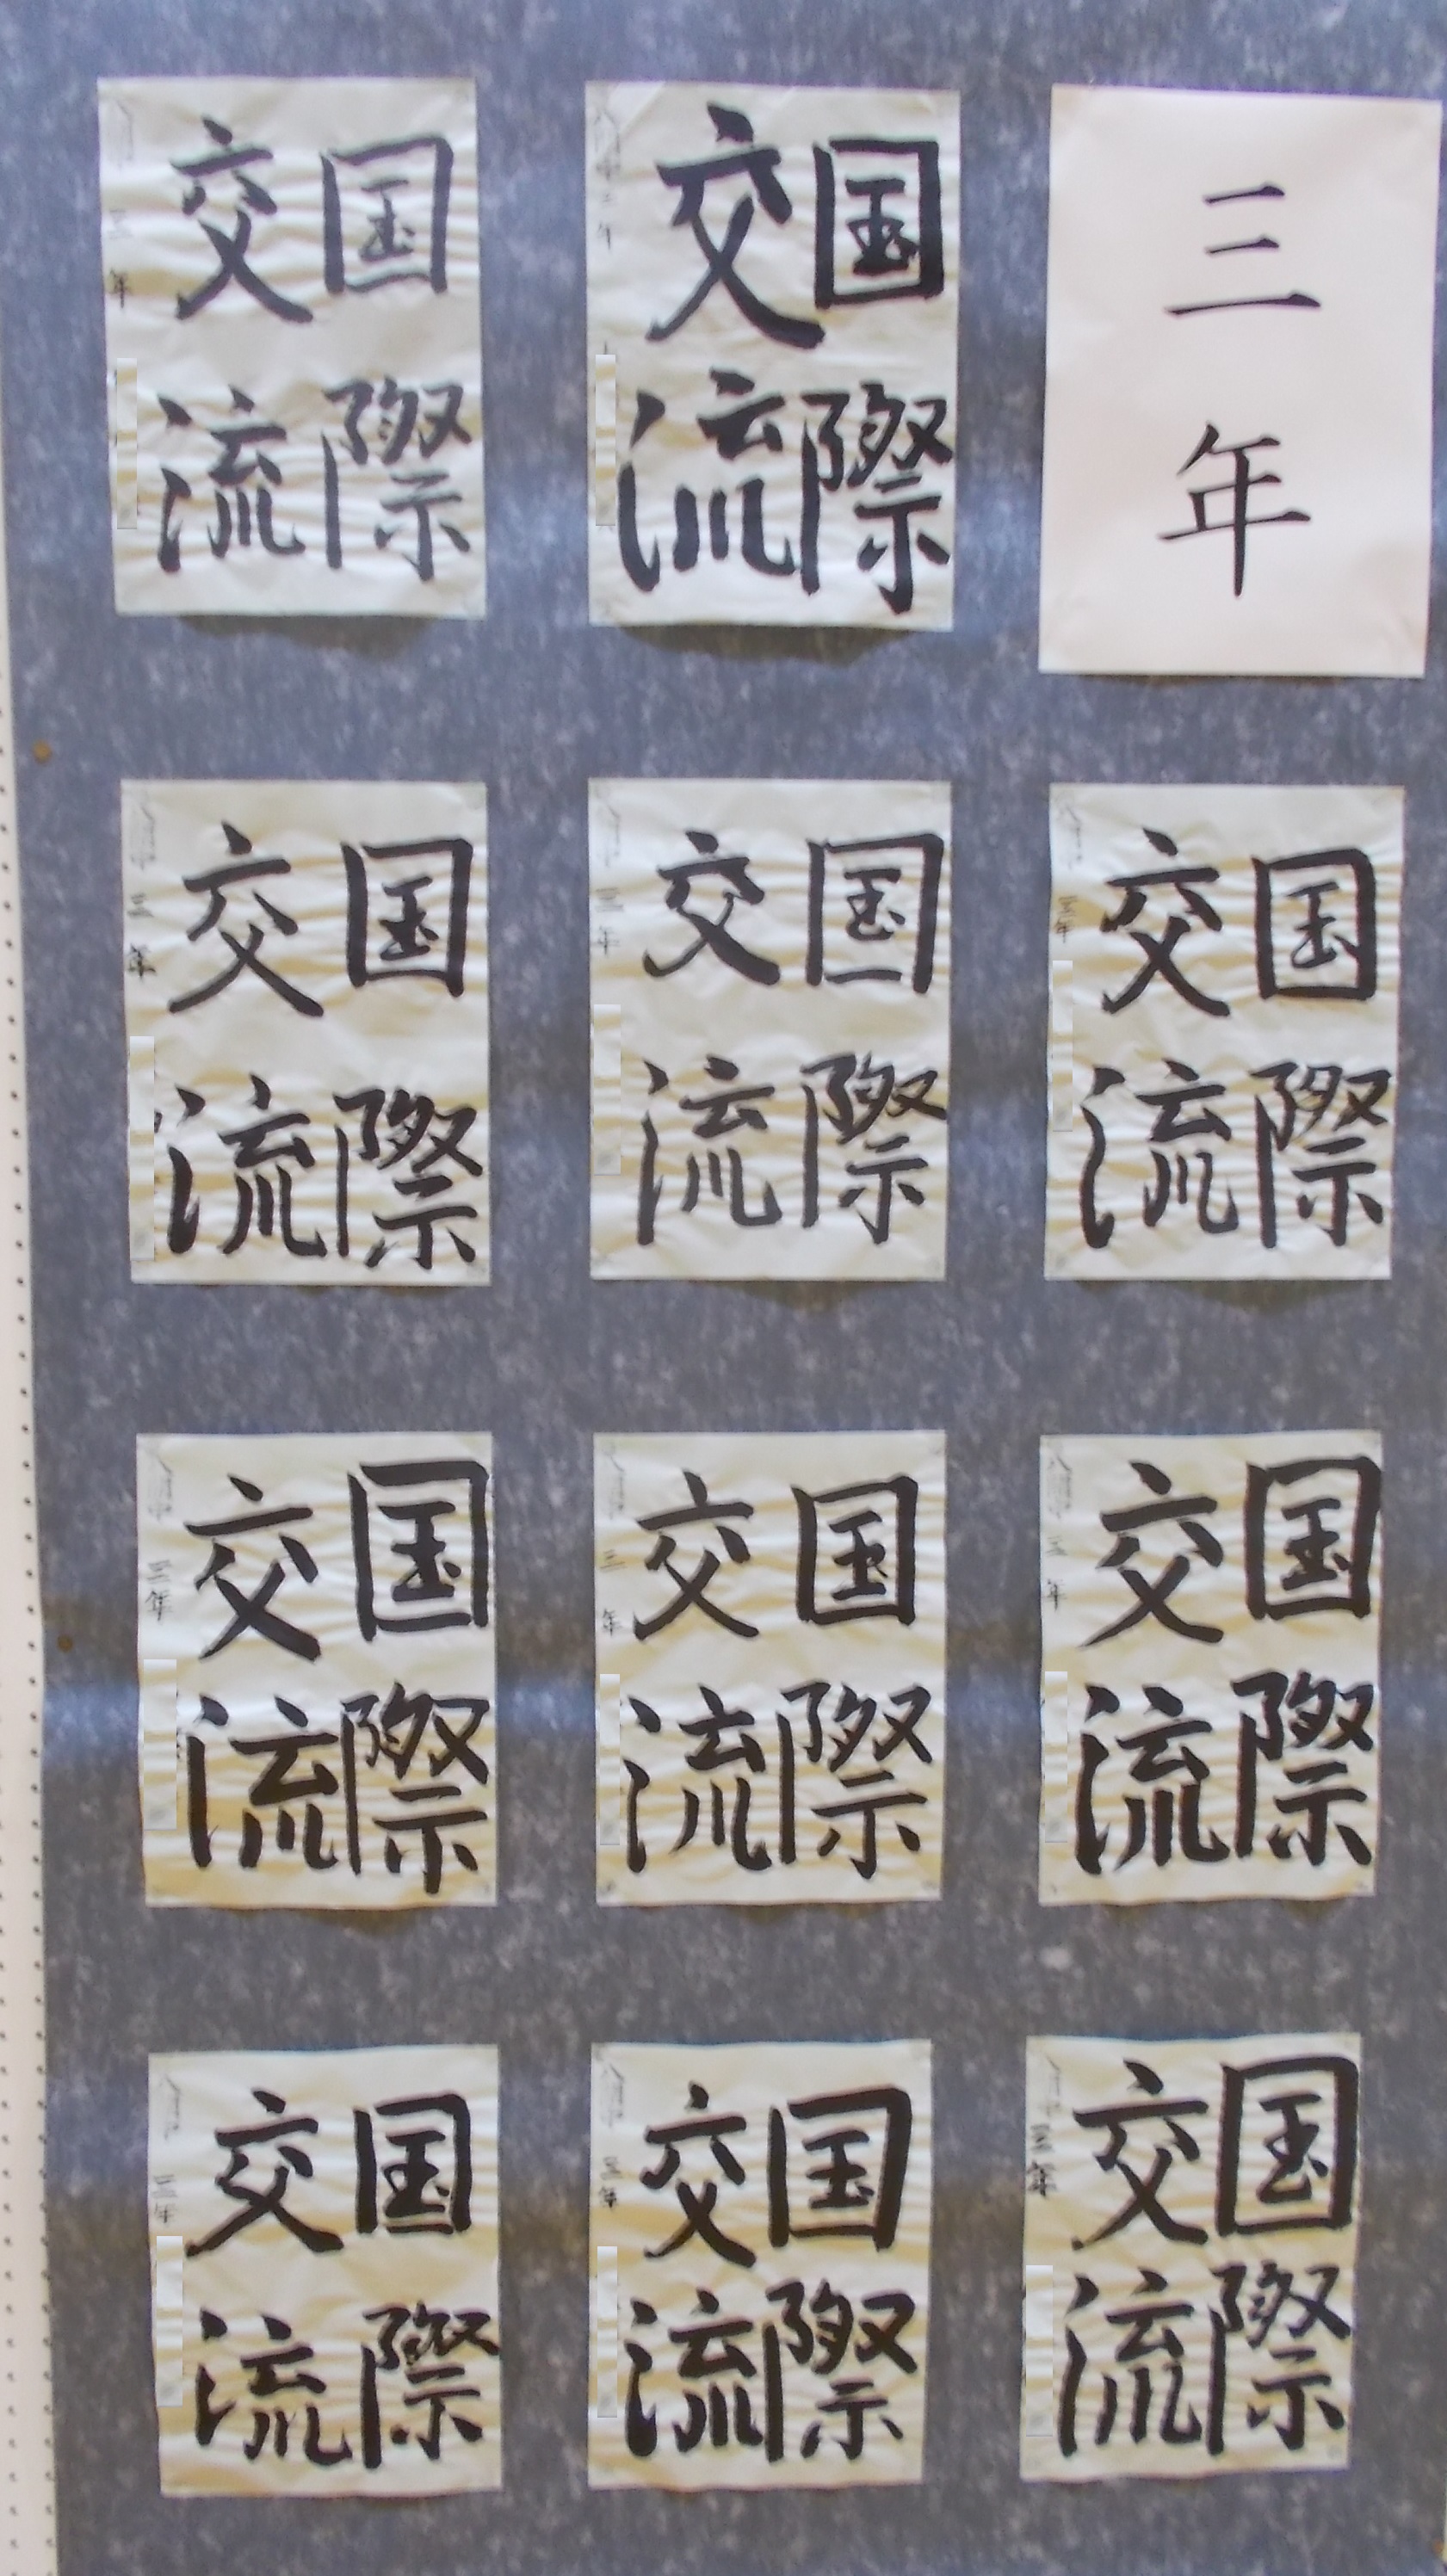 三年
国際
交流
三年
国際
交流
三年
国際
交流
三年
国際
交流
三年
国際
交流
三年
国際
交流
三年
国際
交流
三年
国際
交流
三年
国際
交流
三年
国際
交流
三年
国際
交流
三年